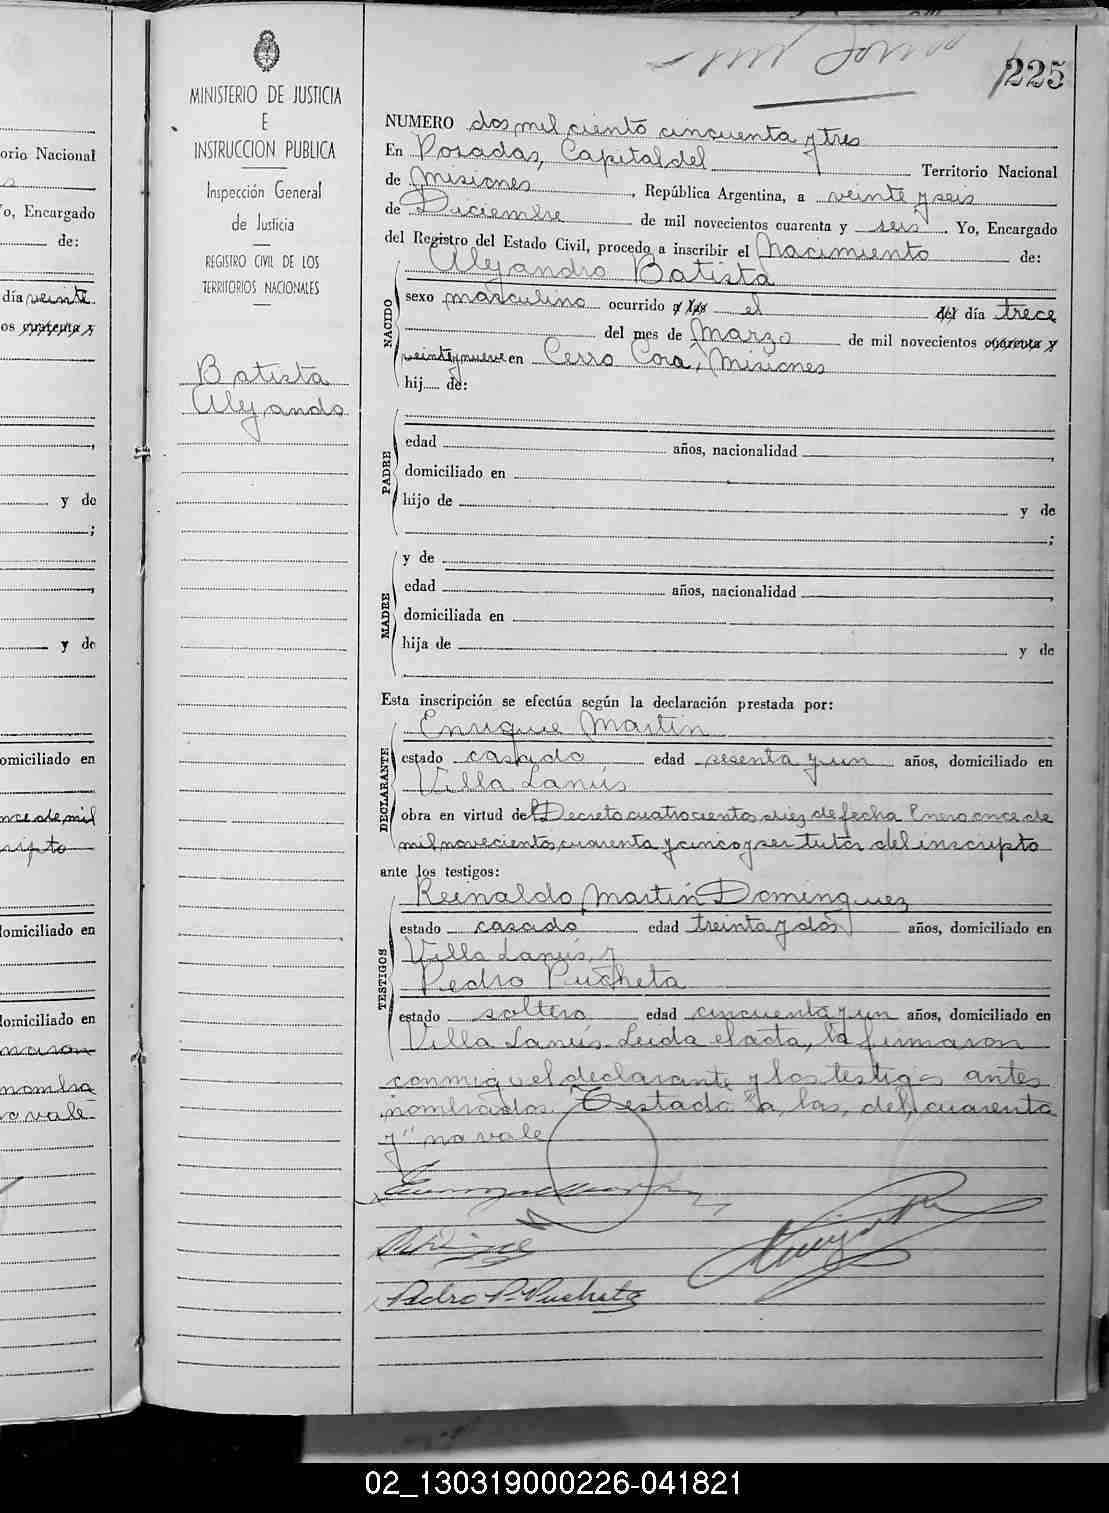 225
MINISTERIO DE JUSTICIA
E
INSTRUCCION PUBLICA
Inspección General
de Justicia
REGISTRO CIVIL DE LOS
TERRITORIOS NACIONALES
Batista
Alejando
NUMERO dos mil ciento cincuenta y tres
En Posadas, Capital del Territorio Nacional
de Misiones, República Argentina, a veinte y seis
de Diciembre de mil novecientos cuarenta y seis. Yo, Encargado
del Registro del Estado Civil, procedo a inscribir el Nacimiento de:
Alejandro Batista
NACIDO
sexo masculino ocurrido a las el del día trece
del mes de Marzo de mil novecientos cuarenta y
veinte y nueve en Cerro Cora, Misiones
hij de:
PADRE
edad años, nacionalidad
domiciliado en
hijo de y de
;
MADRE
y de
edad años, nacionalidad
domiciliada en
hija de y de
Esta inscripción se efectúa según la declaración prestada por:
DECLARANTE
Enrique Martin
estado casado edad sesenta y un años, domiciliado en
Villa Lanús
obra en virtud del Decreto cuatrocientos diez de fecha Enero once de
mil novecientos cuarenta y cinco y ser tutor del inscripto
ante los testigos:
TESTIGOS
Reinaldo Martin Dominguez
estado casado edad treinta y dos años, domiciliado en
Villa Lanús, y
Pedro Pucheta
estado soltero edad cincuenta y un años, domiciliado en
Villa Lanús. Leida el acta, la firmaron
conmigo el declarante y los testigos antes
nombrados. Testado "a, las, del, cuarenta
y" no vale
Pedro P. Pucheta
orio Nacional
o, Encargado
de:
día veinte
os cuarenta y
y de
;
y de
omiciliado en
nce de mil
ripto
omiciliado en
omiciliado en
maron
nombra
o vale
02_130319000226-041821